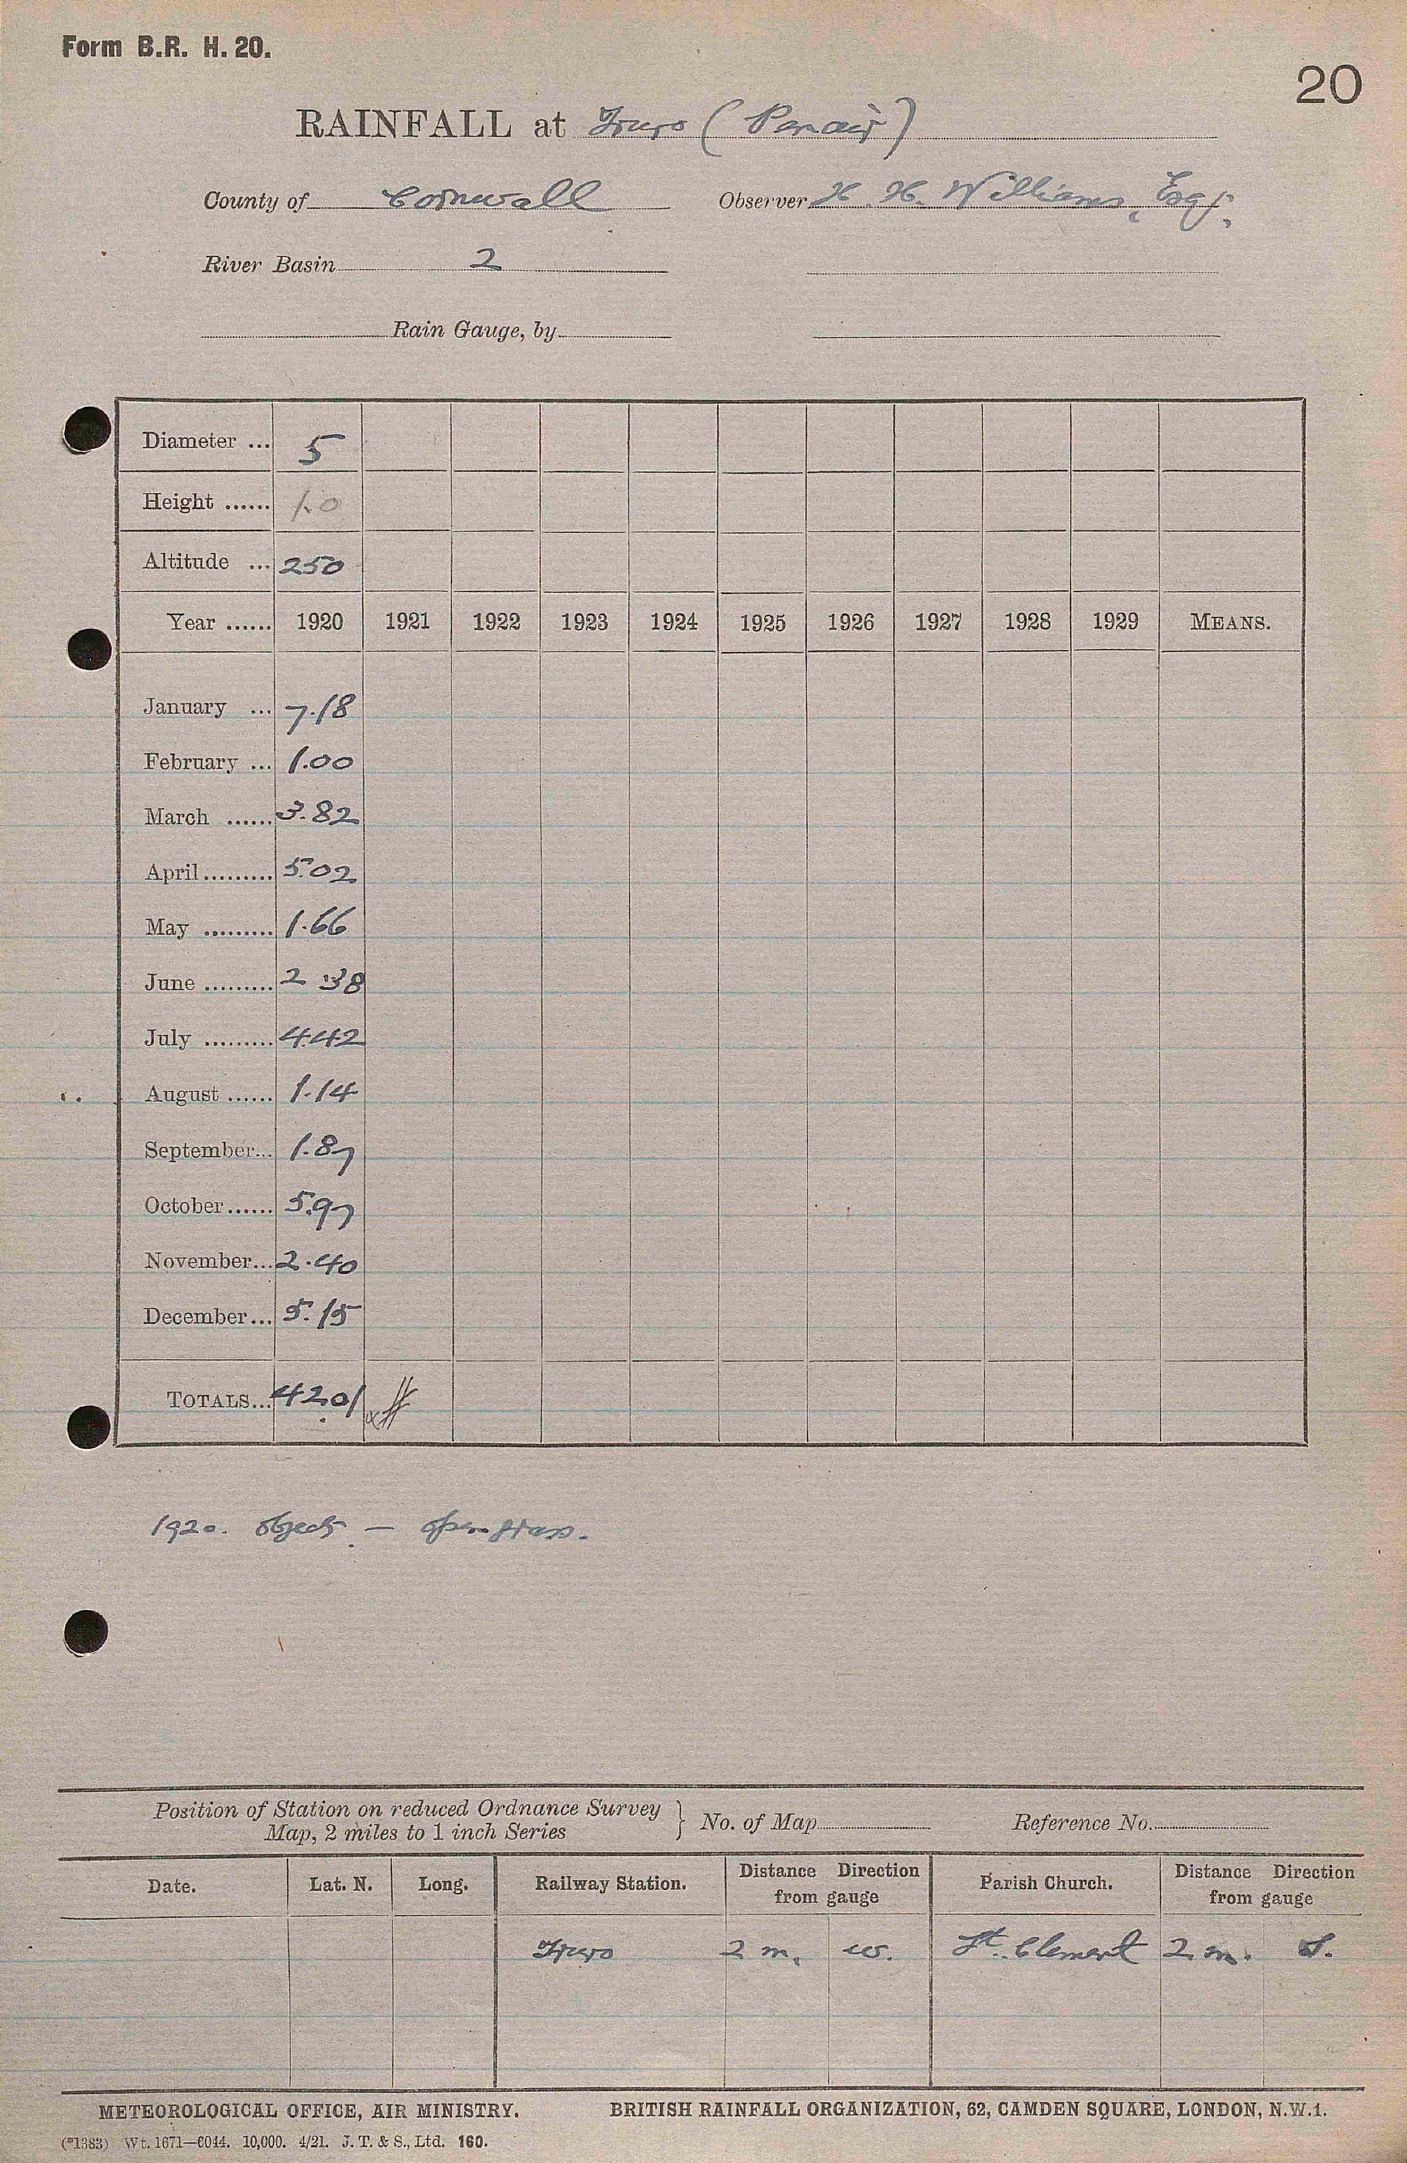 Form B.R. H. 20.
20
RAINFALL at Truro (Penair)
County of Cornwall Observer H. H. Williams, Esq.,
River Basin 2
Rain Gauge, by
Diameter ... 5
Height ...... 1.0
Altitude ... 250
Year ...... 1920 1921 1922 1923 1924 1925 1926 1927 1928 1929 MEANS.
January ... 7.18
February ... 1.00
March ...... 3.82
April ......... 5.02
May ......... 1.66
June ......... 2 38
July ......... 4.42
August ...... 1.14
September... 1.87
October ...... 5.97
November... 2.40
December... 5.15
TOTALS... 42.01
1920. Objects — Open grass.
Position of Station on reduced Ordnance Survey
Map, 2 miles to 1 inch Series } No. of Map Reference No.
Date. Lat. N. Long. Railway Station. Distance Direction from gauge Parish Church. Distance Direction from gauge
Truro 2 m. W. St. Clement 2 m. S.
METEOROLOGICAL OFFICE, AIR MINISTRY. BRITISH RAINFALL ORGANIZATION, 62, CAMDEN SQUARE, LONDON, N.W.1.
(*1383) Wt. 1671—6044. 10,000. 4/21. J. T. & S., Ltd. 160.